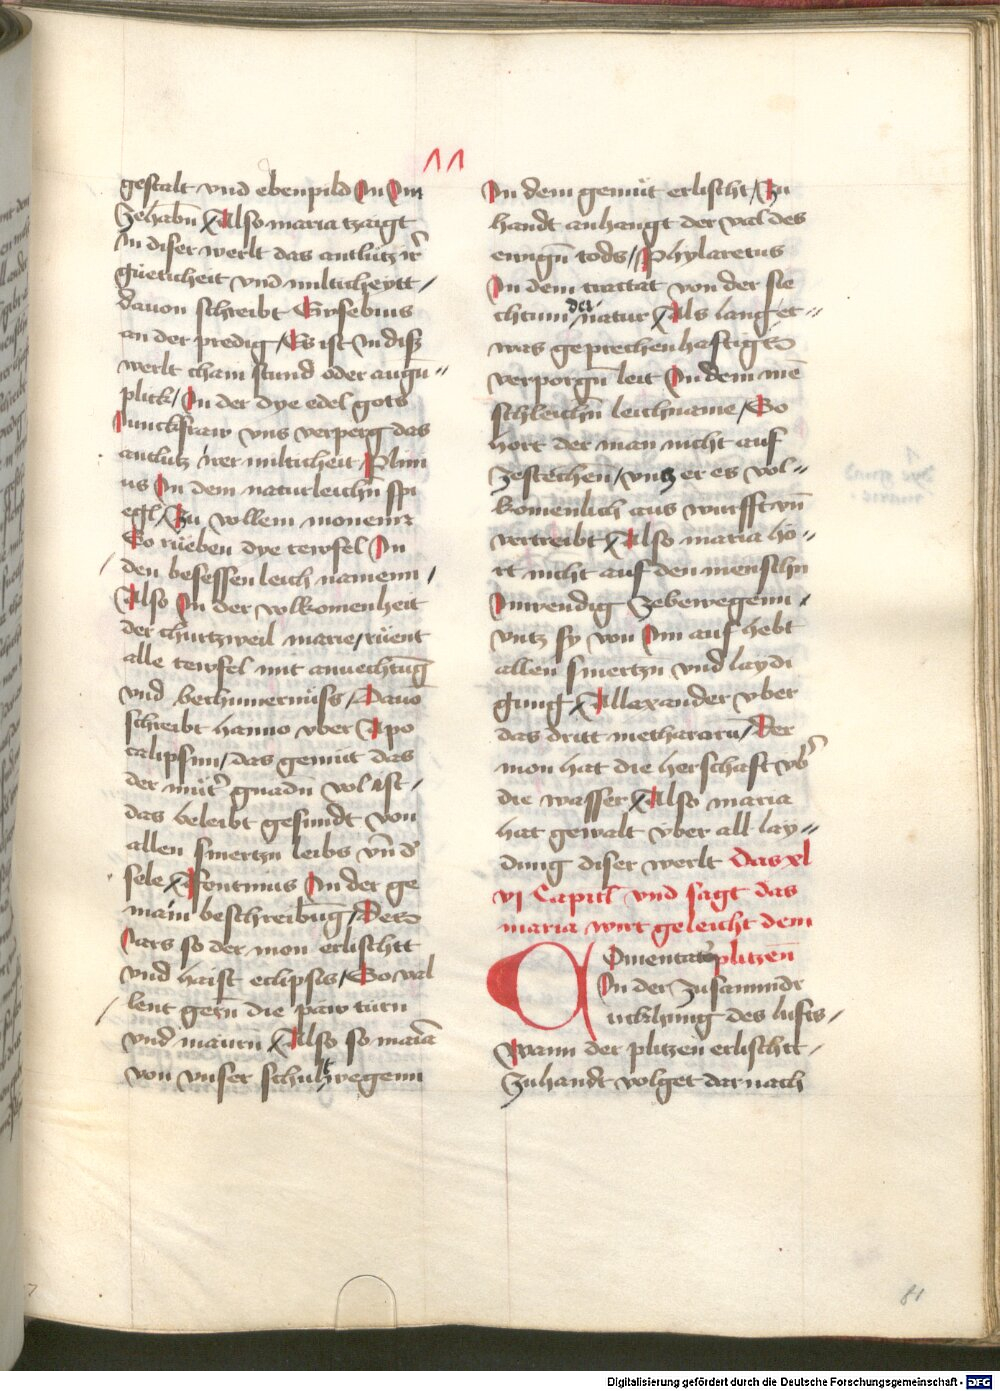 gestalt vnd ebenpild In Im
zehabn̄ Also maria tzaigt
In diser werlt das antlutz ir̄
gueticheit vnd milticheytt /
dauon schreibt Eusebius
an der predig / Es ist In diſz
werlt cham stund oder augn̄ //
plick / In der dye edel gots
Iunckfraw vns verperg das
antlutz irer milticheit Plini
us In dem naturleichn̄ spi
egl / Zu vollem monem̄
So rueben dye tewfel In
den besessen leichnamenn /
Also In der volkomenheit
der churtzweil marie / ruent
alle tewfel mit anuechtūg
vnd bechumernuſs / Dauō
schreibt hanno vber Apo
calipsim / das gemut das
der mut̄ gnadn̄ vol ist /
das beleibt gesundt von
allen smertzn leibs vn̄ d̄
sele Fontinus In der ge
main beschreibūg / Des
Iars so der mon erlischtt
vnd haist eclipsis / So val
lent gern̄ die paw turn
vnd maurn Also so mariā
von vnser schuld wegenn
In dem gemut erlischt / Zu
handt anhangt der val des
ewign̄ tods / Phylaretus
In dem tractat von der sie
chtum der natur Als lang et //
was geprechenhaftigs
verporgn̄ leit In dem mē
schleichn̄ leichname / So
hort der man nicht auf
zestechen / vntz er es vol //
komenlich aus wurfft vn̄
vertreibt Also maria ho //
rt nicht auf den menschn̄
Inwendig zebewegenn /
vntz sy von Im auf hebt
allen smertzn vnd laydi
gung Allaxander vber
das dritt methararū / Der
mon hat die herschaft vb̄
die wasser Also maria
hat gewalt vber all lay //
dung diser werlt Das xl
vj Capitl vnd sagt das
maria wirt geleicht dem
plitzen̄
In der zusamndr
ucklynng des lufts /
Wann der plitzen erlischtt /
zuhandt volget dar nach
81
Digitalisierung gefördert durch die Deutsche Forschungsgemeinschaft - DFG